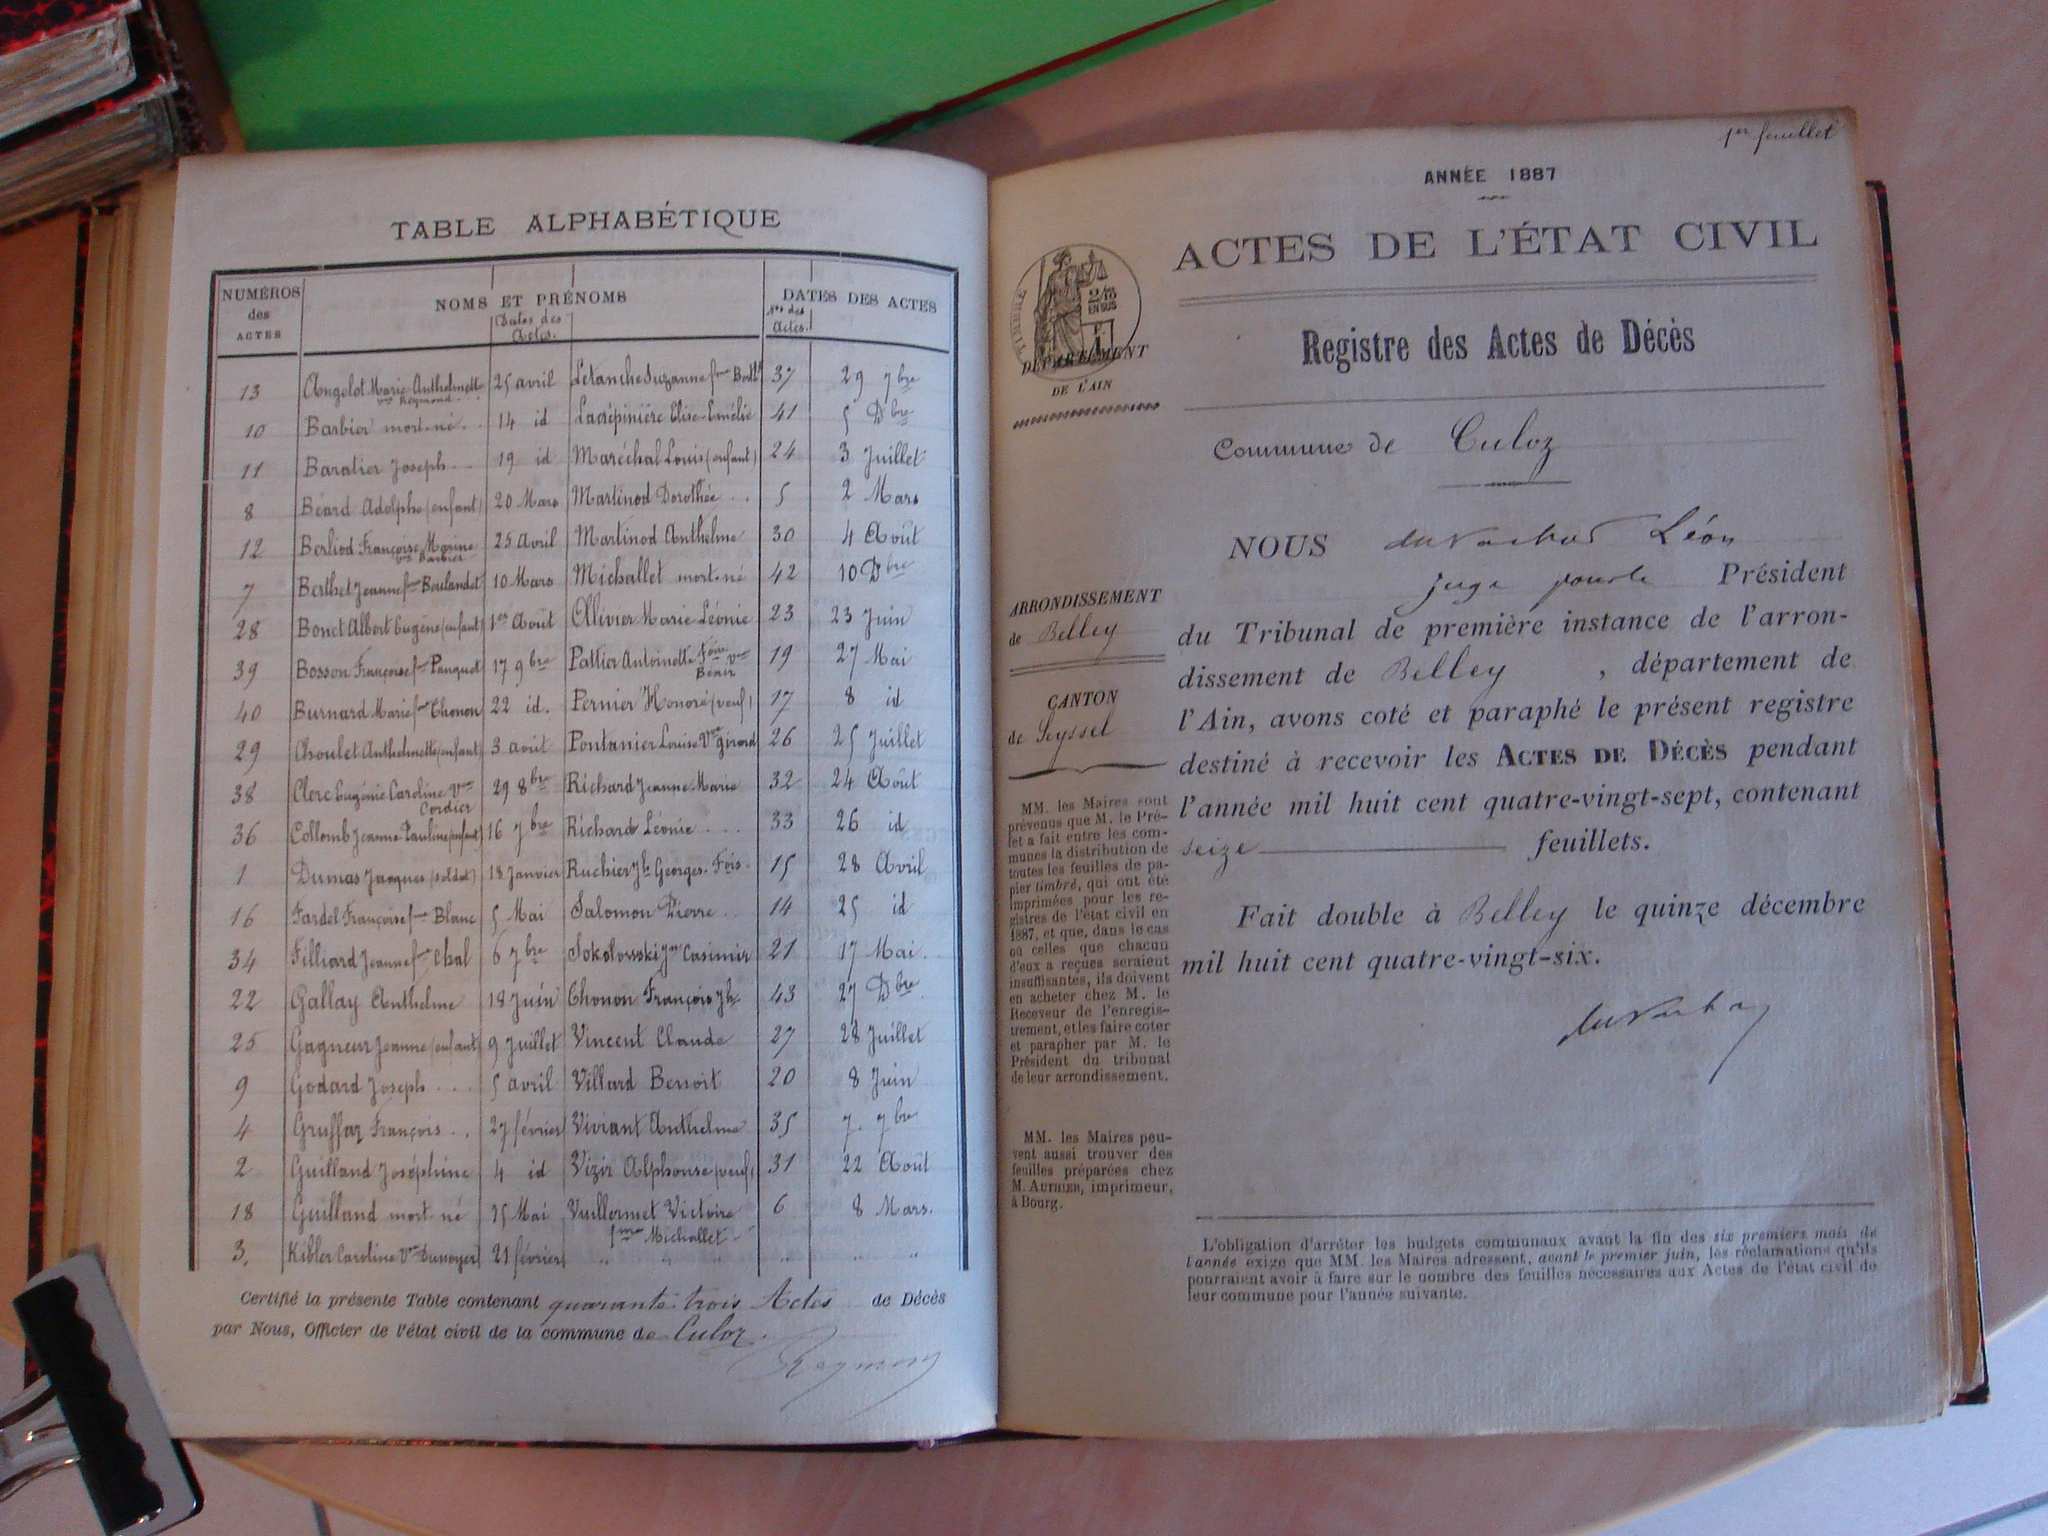 TABLE ALPHABÉTIQUE
NUMÉROS des ACTES NOMS ET PRÉNOMS DATES DES ACTES
Dates des Actes. Nos des Actes.
13 Angelot Marie Anthelmette vve Reymond 25 avril Letanche Suzanne fme Berth 37 29 7bre
10 Barbier mort-né 14 id Lacrépinière Elise Emélie 41 5 Dbre
11 Baratier Joseph 19 id Maréchal Louis (enfant) 24 3 Juillet
8 Béard Adolphe (enfant) 20 Mars Martinod Dorothée 5 2 Mars
12 Berliod Françoise Marine vve Barbier 25 avril Martinod Anthelme 30 4 Août
7 Berthet Jeanne fme Boulandet 10 Mars Michallet mort-né 42 10 Dbre
28 Bonct Albert Eugène (enfant) 1er Août Ollivier Marie Léonie 23 23 Juin
39 Bosson Françoise fme Panquet 17 9bre Pattier Antoinette Foise vve Béair 19 27 Mai
40 Burnard Marie fme Chonon 22 id. Pernier Honoré (veuf) 17 8 id
29 Choulet Anthelmette (enfant) 3 août Pontanier Louise Vve Girord 26 25 Juillet
38 Clerc Eugénie Caroline Vve Cordier 29 8bre Richard Jeanne Marie 32 24 Août
36 Collomb Jeanne Pauline (enfant) 16 7bre Richard Léonie 33 26 id
1 Dumas Jacques (soldat) 18 Janvier Ruchier Jh Georges Fois 15 28 Avril
16 Fardel Françoise fme Blanc 5 Mai Salomon Pierre 14 25 id
34 Filliard Jeanne fme Chal 6 7bre Sokolowski Jn Casimir 21 17 Mai
22 Gallay Anthelme 18 Juin Chonon François Jh 43 27 Dbre
25 Gagneur Jeanne (enfant) 9 Juillet Vincent Claude 27 28 Juillet
9 Godard Joseph 5 avril Villard Benoit 20 8 Juin
4 Gruffaz François 27 février Viviant Anthelme 35 7 7bre
2 Guilland Joséphine 4 id Vizir Alphonse (veuf) 31 22 Août
18 Guilland mort né 25 Mai Vuillermet Victoire fme Michallet 6 8 Mars.
3. Kibler Caroline Vve Dunoyer 21 février " " " " "
Certifié la présente Table contenant quarante trois Actes de Décès
par Nous, Officier de l'état civil de la commune de Culoz.
1er feuillet
ANNÉE 1887
ACTES DE L'ÉTAT CIVIL
TIMBRE
2/10
EN SUS
DÉPARTEMENT
DE L'AIN
Registre des Actes de Décès
Commune de Culoz
NOUS Léon
juge pour le Président
du Tribunal de première instance de l'arron-
dissement de Belley , département de
l'Ain, avons coté et paraphé le présent registre
destiné à recevoir les ACTES DE DÉCÈS pendant
l'année mil huit cent quatre-vingt-sept, contenant
seize feuillets.
Fait double à Belley le quinze décembre
mil huit cent quatre-vingt-six.
ARRONDISSEMENT
de Belley
CANTON
de Seyssel
MM. les Maires sont
prévenus que M. le Pré-
fet a fait entre les com-
munes la distribution de
toutes les feuilles de pa-
pier timbré, qui ont été
imprimées pour les re-
gistres de l'état civil en
1887, et que, dans le cas
où celles que chacun
d'eux a reçues seraient
insuffisantes, ils doivent
en acheter chez M. le
Receveur de l'enregis-
trement, et les faire coter
et parapher par M. le
Président du tribunal
de leur arrondissement.
MM. les Maires peu-
vent aussi trouver des
feuilles préparées chez
M. AUTHIER, imprimeur,
à Bourg.
L'obligation d'arrêter les budgets communaux avant la fin des six premiers mois de
l'année exige que MM. les Maires adressent, avant le premier juin, les réclamations qu'ils
pourraient avoir à faire sur le nombre des feuilles nécessaires aux Actes de l'état civil de
leur commune pour l'année suivante.